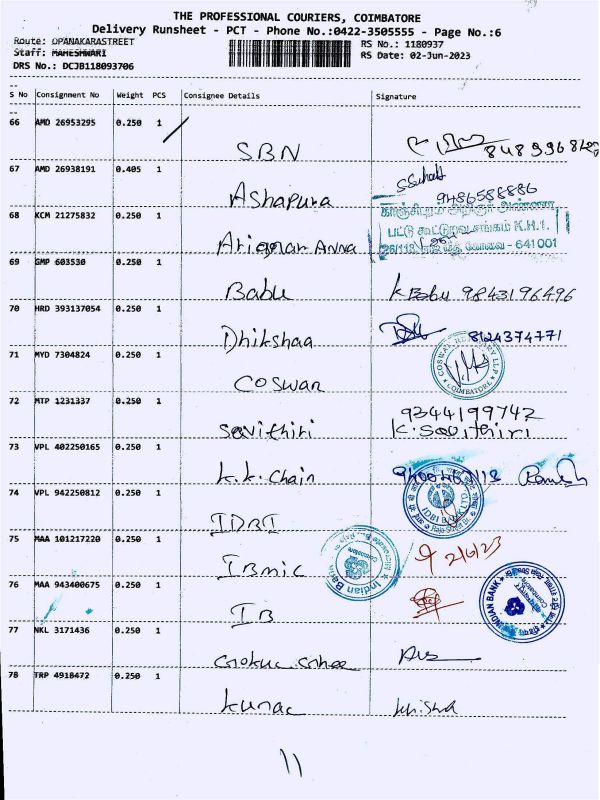 THE PROFESSIONAL COURIERS, COIMBATORE
Delivery Runsheet - PCT - Phone No.:0422-3505555 - Page No.:6
Route: OPANAKARASTREET RS No.: 1180937
Staff: MAHESHWARI RS Date: 02-Jun-2023
DRS No.: DCJB118093706
S No Consignment No Weight PCS Consignee Details Signature
66 AMD 26953295 0.250 1
SBN
67 AMD 26938191 0.405 1
Ashapura 9486588886
68 KCM 21275832 0.250 1
காஞ்சிபுரம் அறிஞர் அண்ணா
பட்டு கூட்டுறவு சங்கம் K.H.1.
கோவை - 641 001
Arignar Anna
69 GMP 603530 0.250 1
Babu K Babu 9843196496
70 HRD 393137054 0.250 1
Dhikshaa 8124374771
71 MYD 7304824 0.250 1
COSWAL LLP COIMBATORE
Coswan
72 MTP 1231337 0.250 1
9344199742
Savithiri K. Savithiri
73 VPL 402250165 0.250 1
K.K. Chain Ramesh
74 VPL 942250812 0.250 1
IDBI IDBI BANK LTD.
75 MAA 101217220 0.250 1
IBmic Indian Bank 2/6/23
76 MAA 943400675 0.250 1
IB INDIAN BANK
77 NKL 3171436 0.250 1
78 TRP 4918472 0.250 1
11